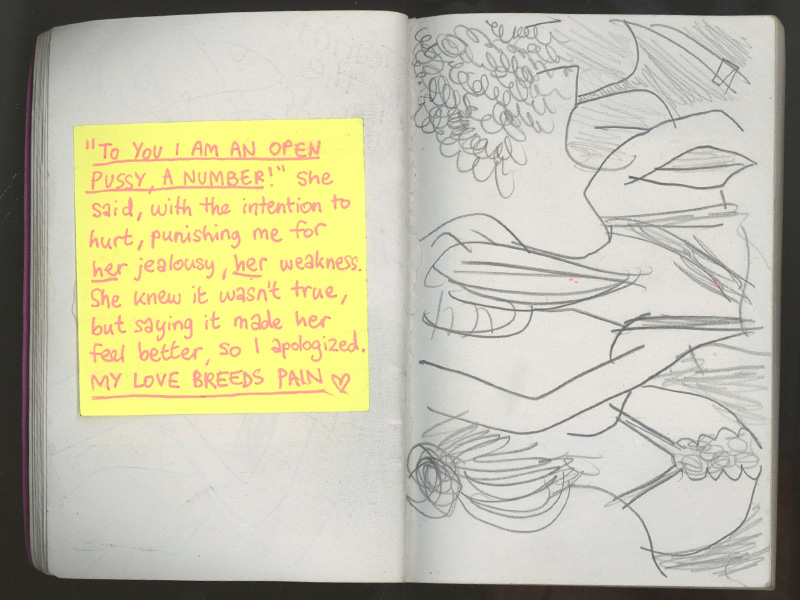 "TO YOU I AM AN OPEN
PUSSY, A NUMBER!" She
said, with the intention to
hurt, punishing me for
her jealousy, her weakness.
She knew it wasn't true,
but saying it made her
feel better, so I apologized.
MY LOVE BREEDS PAIN ♡